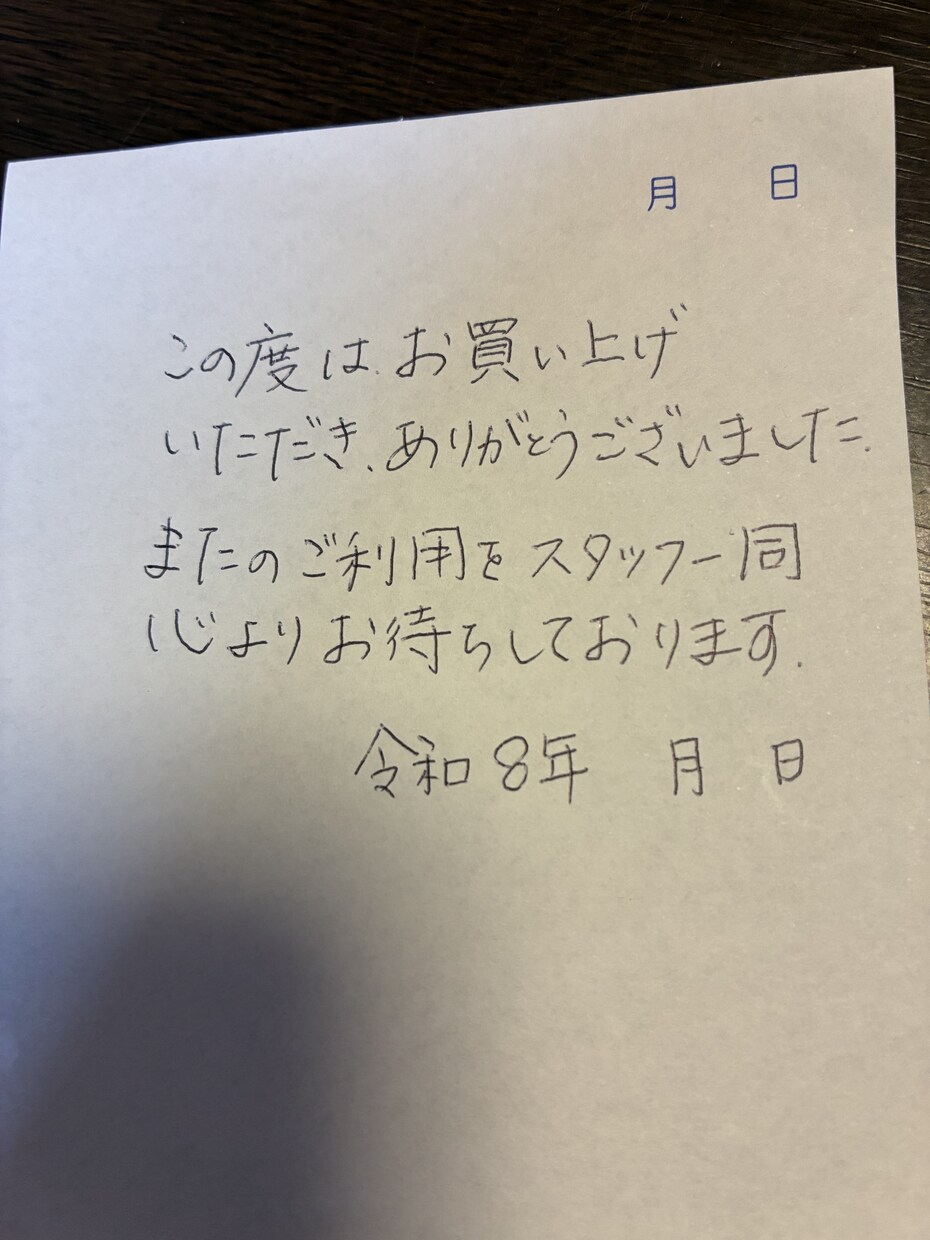 月 日
この度は、お買い上げ
いただき、ありがとうございました.
またのご利用をスタッフ一同
心よりお待ちしております.
令和8年 月 日